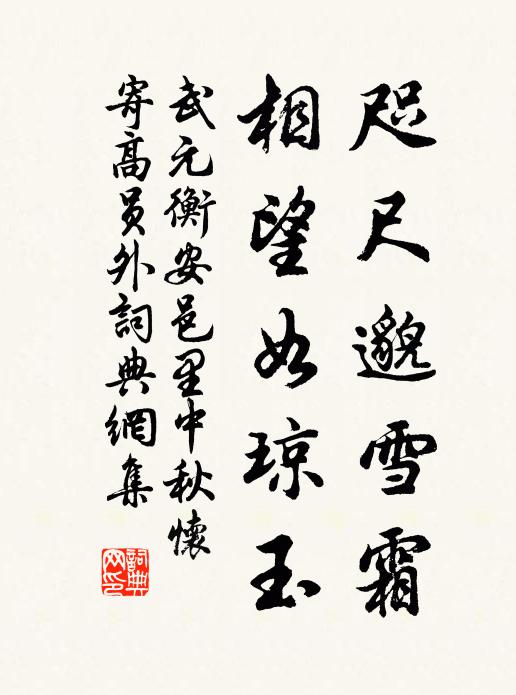 咫尺邈雪霜
相望如琼玉
武元衡安邑里中秋懷
寄高員外詞典網集
詞典
网印